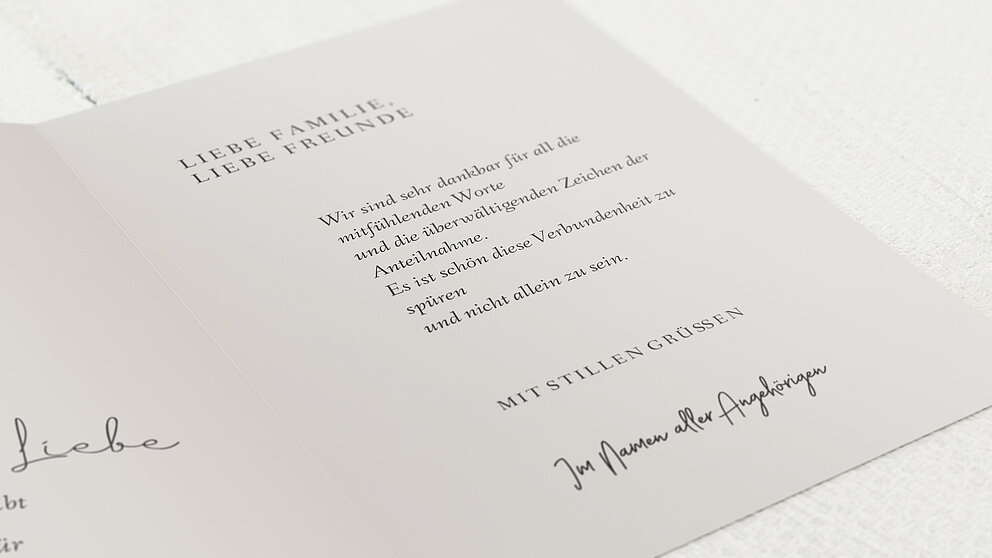 LIEBE FAMILIE,
LIEBE FREUNDE
Wir sind sehr dankbar für all die
mitfühlenden Worte
und die überwältigenden Zeichen der
Anteilnahme.
Es ist schön diese Verbundenheit zu
spüren
und nicht allein zu sein.
MIT STILLEN GRÜSSEN
Im Namen aller Angehörigen
Liebe